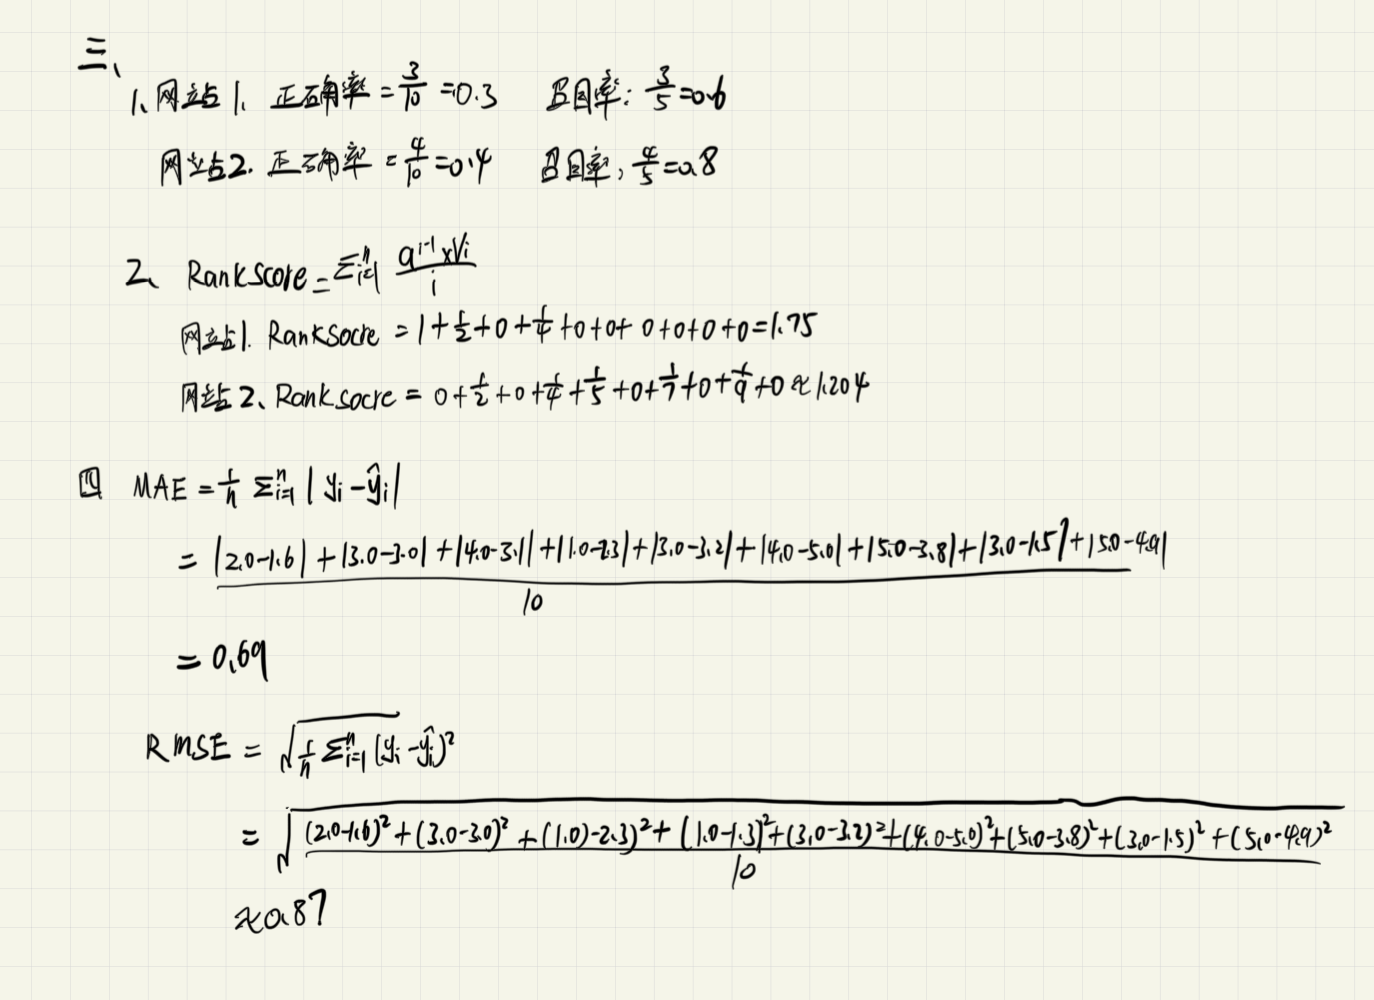 三、
1、网站1. 正确率 = 3/10 = 0.3 召回率: 3/5 = 0.6
网站2. 正确率 = 4/10 = 0.4 召回率: 4/5 = 0.8
2、 RankScore = Σ_{i=1}^{n} (a^{i-1} × Vi)/i
网站1. RankSocre = 1 + 1/2 + 0 + 1/4 + 0 + 0 + 0 + 0 + 0 + 0 = 1.75
网站2、RankSocre = 0 + 1/2 + 0 + 1/4 + 1/5 + 0 + 1/7 + 0 + 1/9 + 0 ≈ 1.204
四 MAE = 1/n Σ_{i=1}^{n} |yi - ŷi|
= (|2.0-1.6| + |3.0-3.0| + |4.0-3.1| + |1.0-2.3| + |3.0-3.2| + |4.0-5.0| + |5.0-3.8| + |3.0-1.5| + |5.0-4.9|)/10
= 0.69
RMSE = √(1/n Σ_{i=1}^{n} (yi - ŷi)²)
= √(((2.0-1.6)² + (3.0-3.0)² + (1.0)-2.3)² + (1.0-1.3)² + (3.0-3.2)² + (4.0-5.0)² + (5.0-3.8)² + (3.0-1.5)² + (5.0-4.9)²)/10)
≈ 0.87